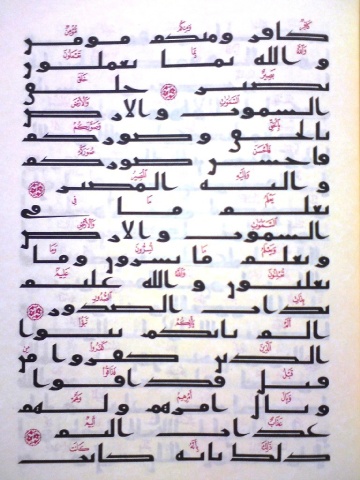 كافر ومنكم مومن
والله بما تعملون
بصير خلق
السموت والارض
بالحق وصوركم
فاحسن صوركم
واليه المصير
يعلم ما في
السموت والارض
ويعلم ما تسرون وما
تعلنون والله عليم
بذات الصدور
الم ياتكم نبوا
الذين كفروا من
قبل فذاقوا
وبال امرهم ولهم
عذاب اليم
ذلك بانه كانت